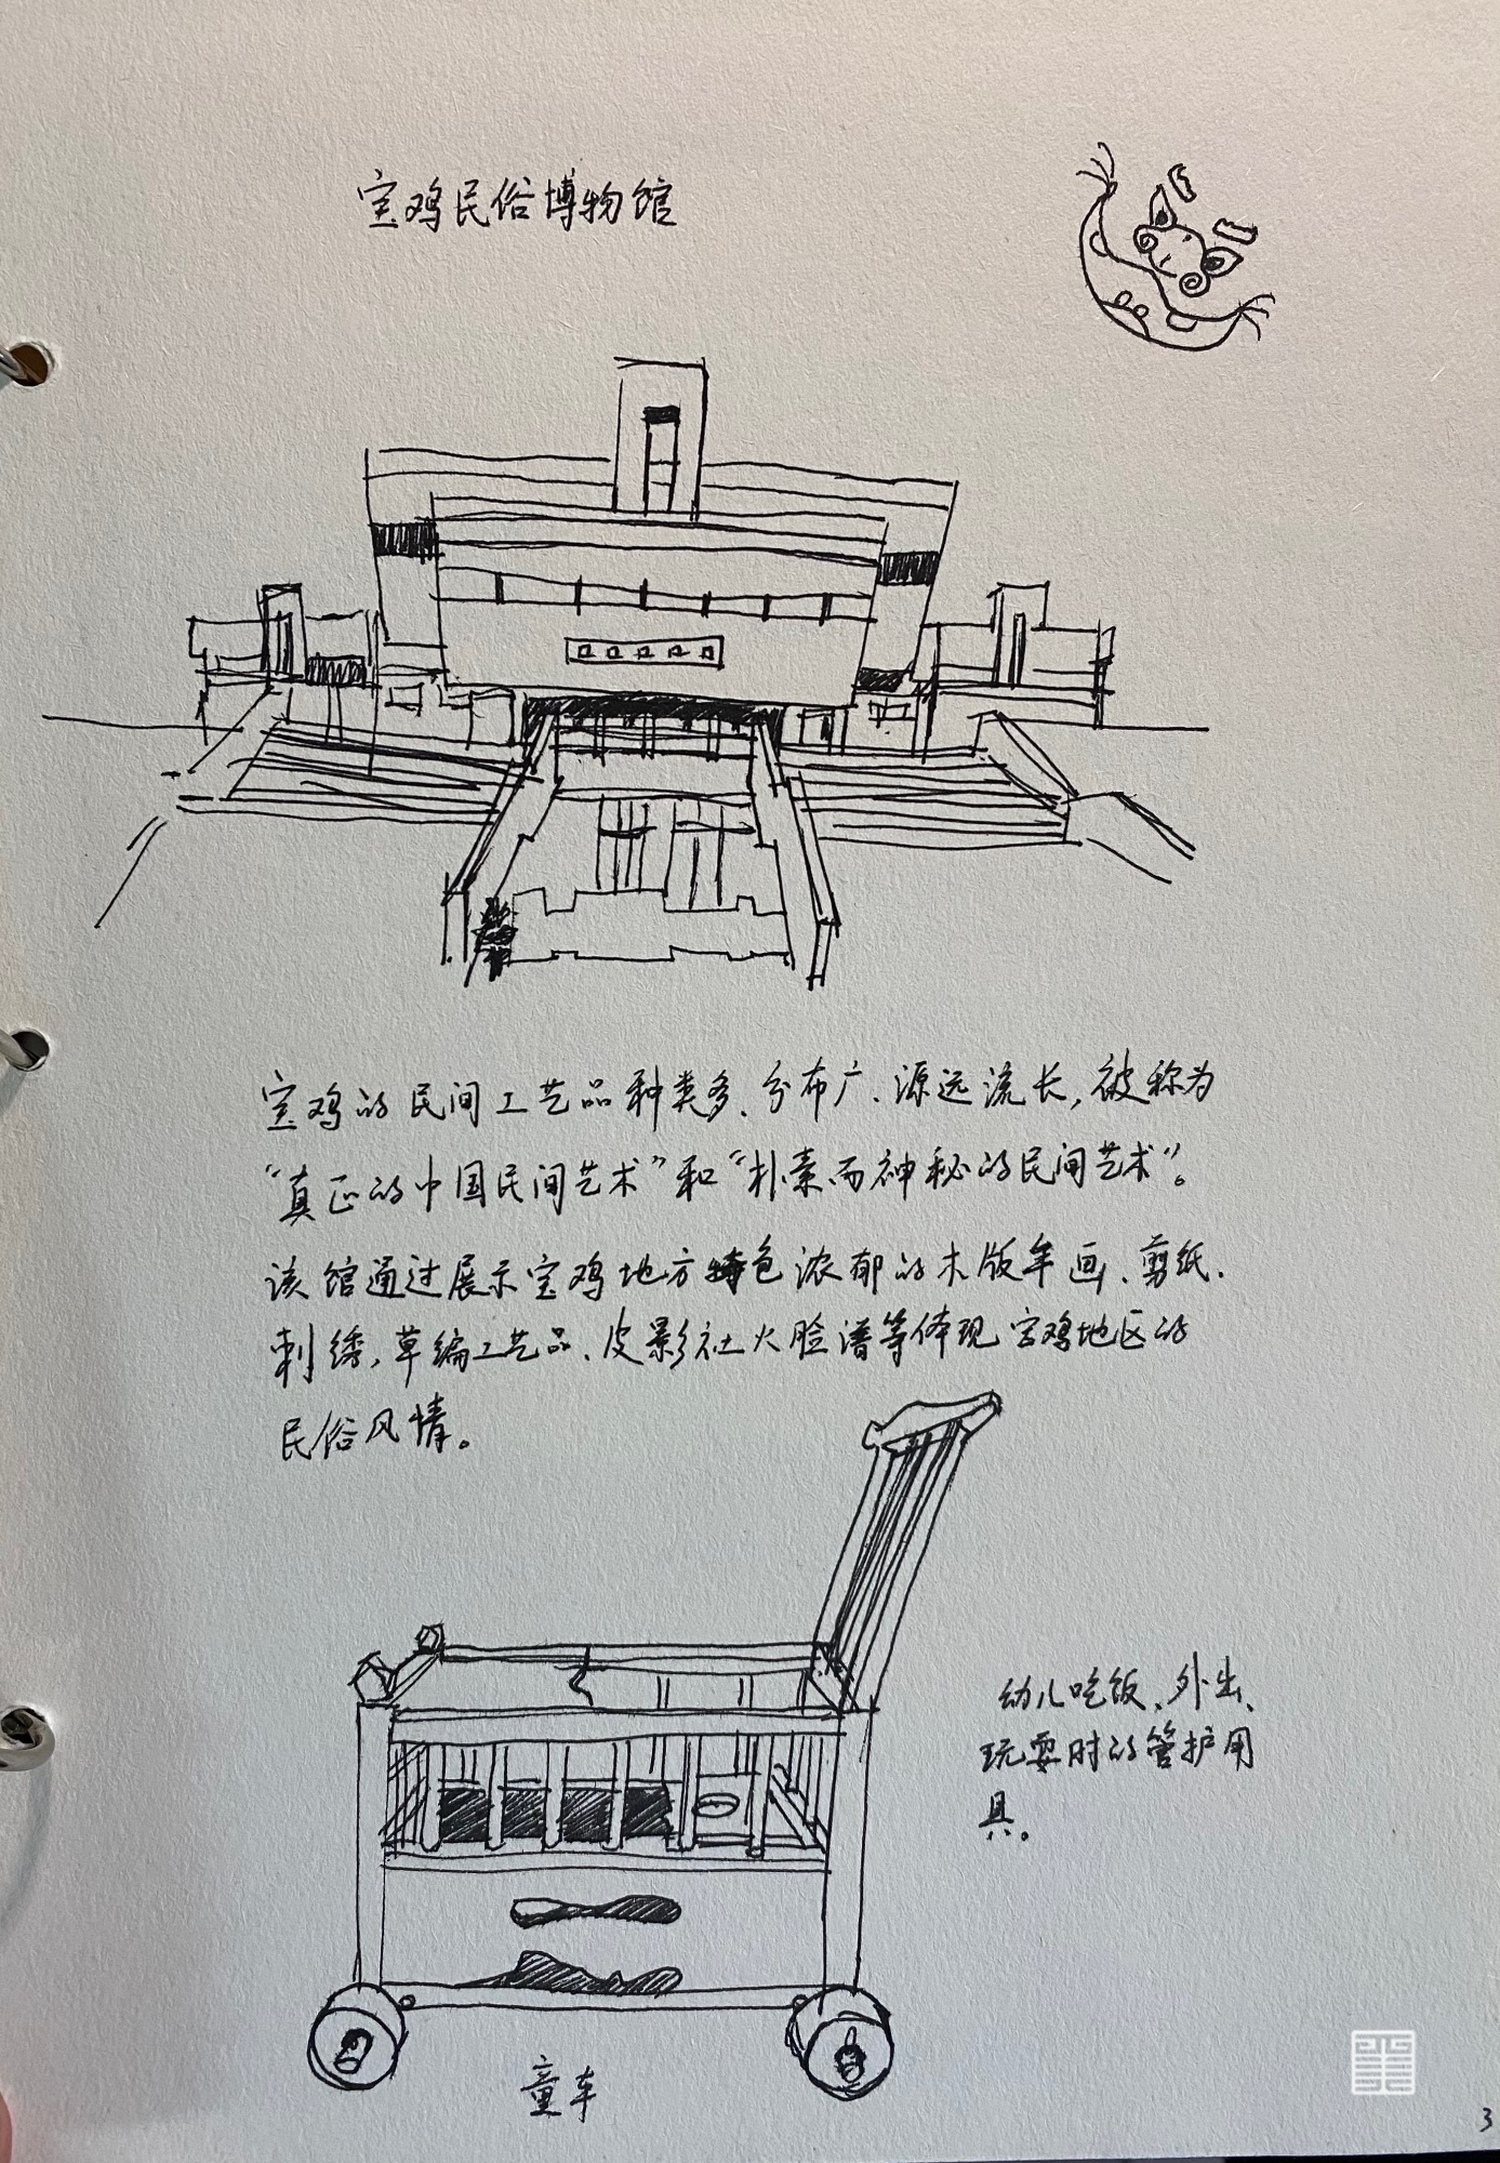 宝鸡民俗博物馆
宝鸡的民间工艺品种类多、分布广、源远流长,被称为
“真正的中国民间艺术”和“朴素而神秘的民间艺术”。
该馆通过展示宝鸡地方特色浓郁的木版年画、剪纸、
刺绣,草编工艺品、皮影社火脸谱等体现宝鸡地区的
民俗风情。
幼儿吃饭、外出、
玩耍时的管护用
具。
童车
3